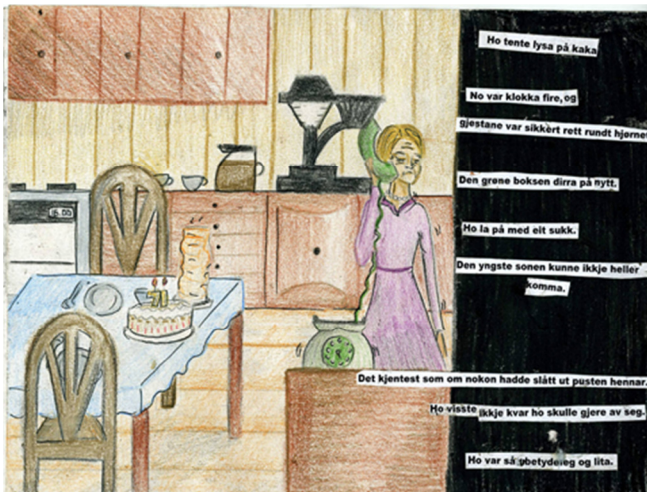 Ho tente lysa på kaka
No var klokka fire, og
gjestane var sikkert rett rundt hjørnet
Den grøne boksen dirra på nytt.
Ho la på med eit sukk.
Den yngste sonen kunne ikkje heller
komma.
Det kjentest som om nokon hadde slått ut pusten hennar.
Ho visste ikkje kvar ho skulle gjere av seg.
Ho var så ubetydeleg og lita.
16.00